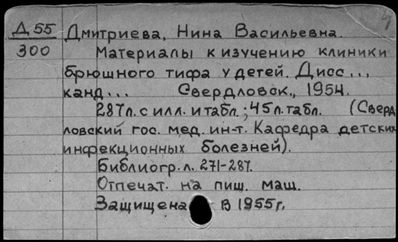 Д 55 Дмитриева, Нина Васильевна.
300 Материалы к изучению клиники
брюшного тифа у детей. Дисс...
канд... Свердловск., 1954.
287л. с илл. и табл.; 45л. табл. (Сверд
ловский гос. мед. ин-т. Кафедра детских
инфекционных болезней).
Библиогр. л. 271-287.
Отпечат. на пиш. маш.
Защищена в 1955г.